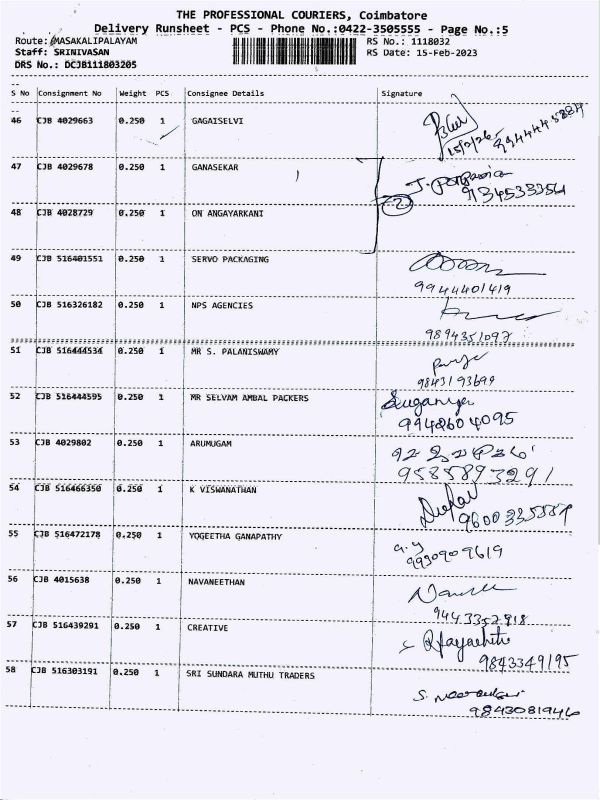 THE PROFESSIONAL COURIERS, Coimbatore
Delivery Runsheet - PCS - Phone No.:0422-3505555 - Page No.:5
Route: MASAKALIPALAYAM RS No.: 1118032
Staff: SRINIVASAN RS Date: 15-Feb-2023
DRS No.: DCJB111803205
S No Consignment No Weight PCS Consignee Details Signature
46 CJB 4029663 0.250 1 GAGAISELVI
47 CJB 4029678 0.250 1 GANASEKAR
2
48 CJB 4028729 0.250 1 ON ANGAYARKANI
49 CJB 516401551 0.250 1 SERVO PACKAGING
9944401419
50 CJB 516326182 0.250 1 NPS AGENCIES
9894351097
51 CJB 516444534 0.250 1 MR S. PALANISWAMY
9843193699
52 CJB 516444595 0.250 1 MR SELVAM AMBAL PACKERS
Suganya
9948604095
53 CJB 4029802 0.250 1 ARUMUGAM
9585893291
54 CJB 516466350 0.250 1 K VISWANATHAN
55 CJB 516472178 0.250 1 YOGEETHA GANAPATHY
9930909619
56 CJB 4015638 0.250 1 NAVANEETHAN
9443352918
57 CJB 516439291 0.250 1 CREATIVE
9843349195
58 CJB 516303191 0.250 1 SRI SUNDARA MUTHU TRADERS
9843081946